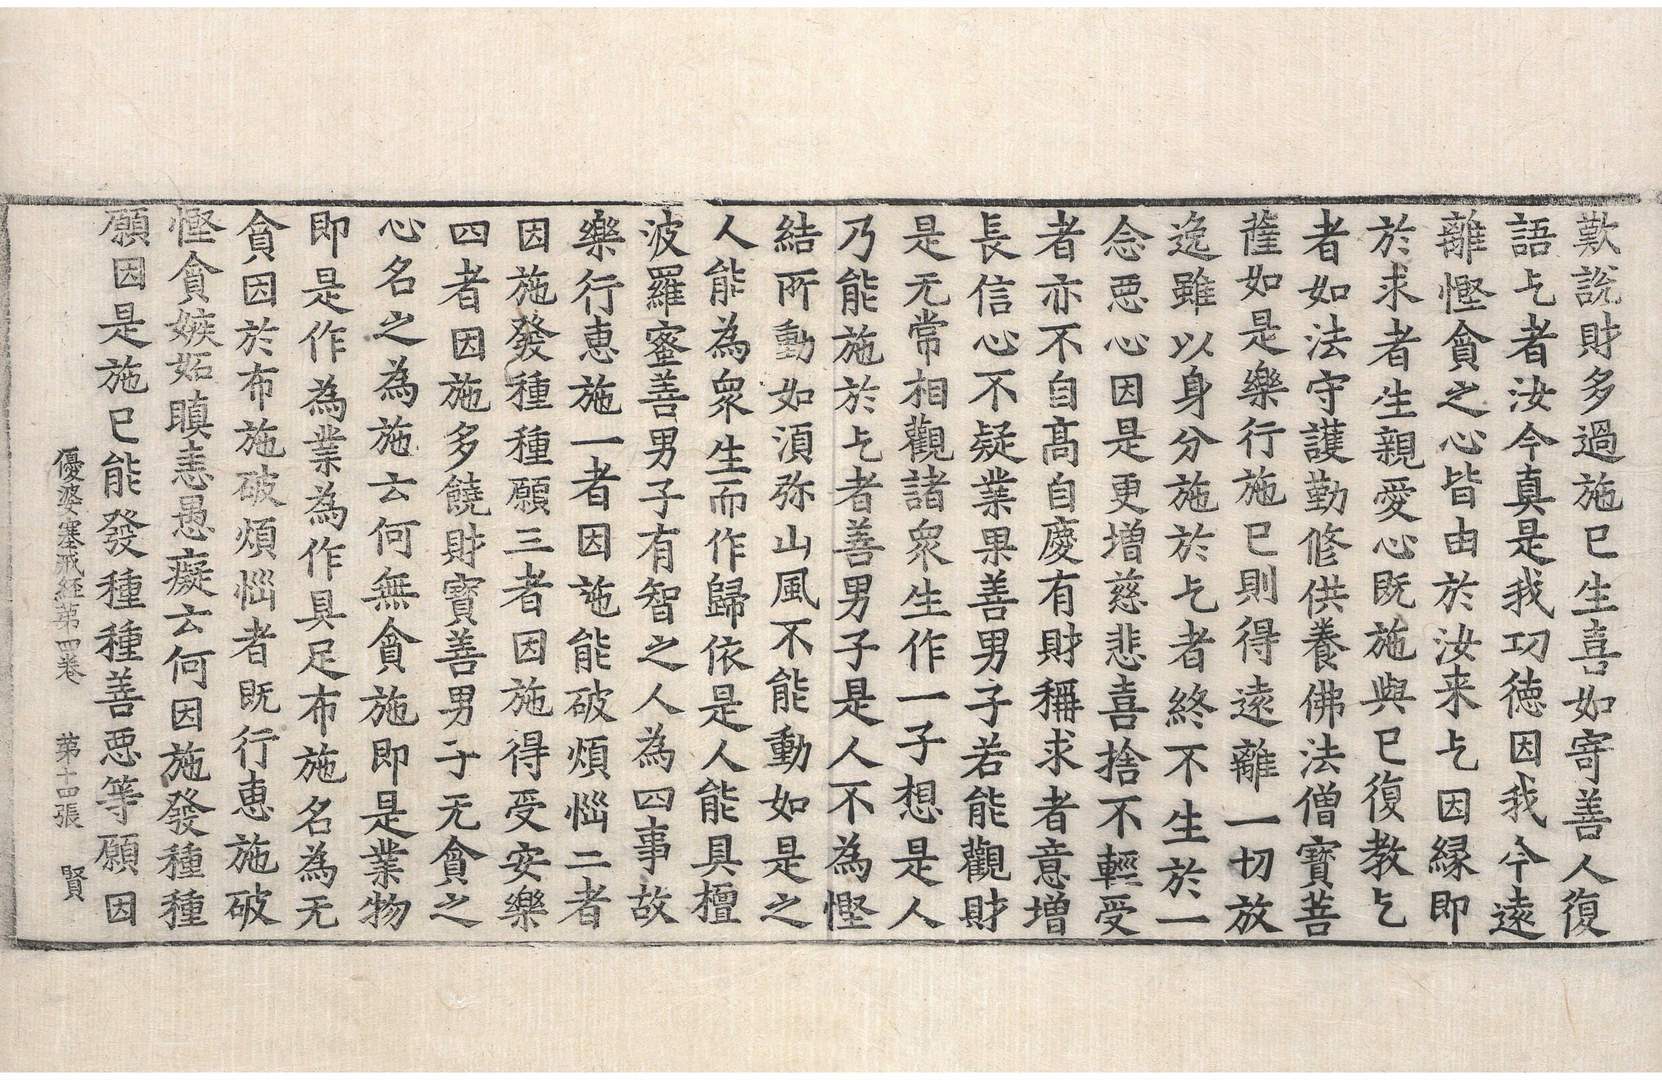 歎說財多過施已生喜如寄善人復
語乞者汝今真是我功德因我今遠
離慳貪之心皆由於汝来乞因縁即
於求者生親愛心既施與已復教乞
者如法守護勤修供養佛法僧寶菩
薩如是樂行施已則得遠離一切放
逸雖以身分施於乞者終不生於一
念惡心因是更增慈悲喜捨不輕受
者亦不自高自慶有財稱求者意增
長信心不疑業果善男子若能觀財
是无常相觀諸衆生作一子想是人
乃能施於乞者善男子是人不為慳
結所動如湏弥山風不能動如是之
人能為衆生而作歸依是人能具檀
波羅蜜善男子有智之人為四事故
樂行惠施一者因施能破煩惱二者
因施發種種願三者因施得受安樂
四者因施多饒財寶善男子无貪之
心名之為施云何無貪施即是業物
即是作為業為作具足布施名為无
貪因於布施破煩惱者既行惠施破
慳貪嫉妬瞋恚愚癡云何因施發種種
願因是施已能發種種善惡等願因
優婆塞戒経第四卷 第十四張 賢